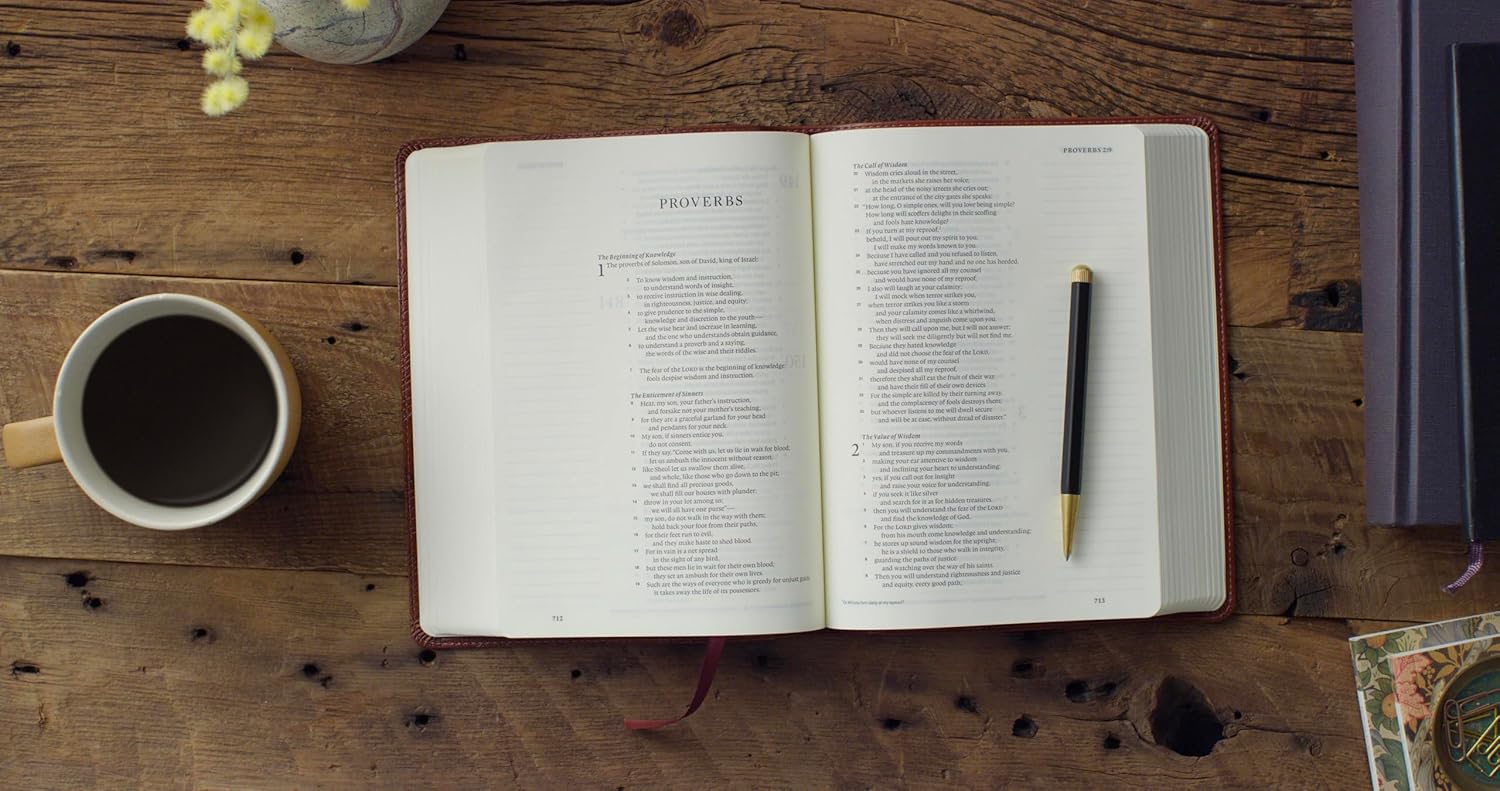 PROVERBS
The Beginning of Knowledge
1 The proverbs of Solomon, son of David, king of Israel:
2 To know wisdom and instruction,
to understand words of insight,
3 to receive instruction in wise dealing,
in righteousness, justice, and equity;
4 to give prudence to the simple,
knowledge and discretion to the youth—
5 Let the wise hear and increase in learning,
and the one who understands obtain guidance,
6 to understand a proverb and a saying,
the words of the wise and their riddles.
7 The fear of the LORD is the beginning of knowledge;
fools despise wisdom and instruction.
The Enticement of Sinners
8 Hear, my son, your father's instruction,
and forsake not your mother's teaching,
9 for they are a graceful garland for your head
and pendants for your neck.
10 My son, if sinners entice you,
do not consent.
11 If they say, "Come with us, let us lie in wait for blood;
let us ambush the innocent without reason;
12 like Sheol let us swallow them alive,
and whole, like those who go down to the pit;
13 we shall find all precious goods,
we shall fill our houses with plunder;
14 throw in your lot among us;
we will all have one purse"—
15 my son, do not walk in the way with them;
hold back your foot from their paths,
16 for their feet run to evil,
and they make haste to shed blood.
17 For in vain is a net spread
in the sight of any bird,
18 but these men lie in wait for their own blood;
they set an ambush for their own lives.
19 Such are the ways of everyone who is greedy for unjust gain;
it takes away the life of its possessors.
712
PROVERBS 2:9
The Call of Wisdom
20 Wisdom cries aloud in the street,
in the markets she raises her voice;
21 at the head of the noisy streets she cries out;
at the entrance of the city gates she speaks:
22 "How long, O simple ones, will you love being simple?
How long will scoffers delight in their scoffing
and fools hate knowledge?
23 If you turn at my reproof,
behold, I will pour out my spirit to you;
I will make my words known to you.
24 Because I have called and you refused to listen,
have stretched out my hand and no one has heeded,
25 because you have ignored all my counsel
and would have none of my reproof,
26 I also will laugh at your calamity;
I will mock when terror strikes you,
27 when terror strikes you like a storm
and your calamity comes like a whirlwind,
when distress and anguish come upon you.
28 Then they will call upon me, but I will not answer;
they will seek me diligently but will not find me.
29 Because they hated knowledge
and did not choose the fear of the LORD,
30 would have none of my counsel
and despised all my reproof,
31 therefore they shall eat the fruit of their way,
and have their fill of their own devices.
32 For the simple are killed by their turning away,
and the complacency of fools destroys them;
33 but whoever listens to me will dwell secure
and will be at ease, without dread of disaster."
The Value of Wisdom
2 1 My son, if you receive my words
and treasure up my commandments with you,
2 making your ear attentive to wisdom
and inclining your heart to understanding;
3 yes, if you call out for insight
and raise your voice for understanding,
4 if you seek it like silver
and search for it as for hidden treasures,
5 then you will understand the fear of the LORD
and find the knowledge of God.
6 For the LORD gives wisdom;
from his mouth come knowledge and understanding;
7 he stores up sound wisdom for the upright;
he is a shield to those who walk in integrity,
8 guarding the paths of justice
and watching over the way of his saints.
9 Then you will understand righteousness and justice
and equity, every good path;
713